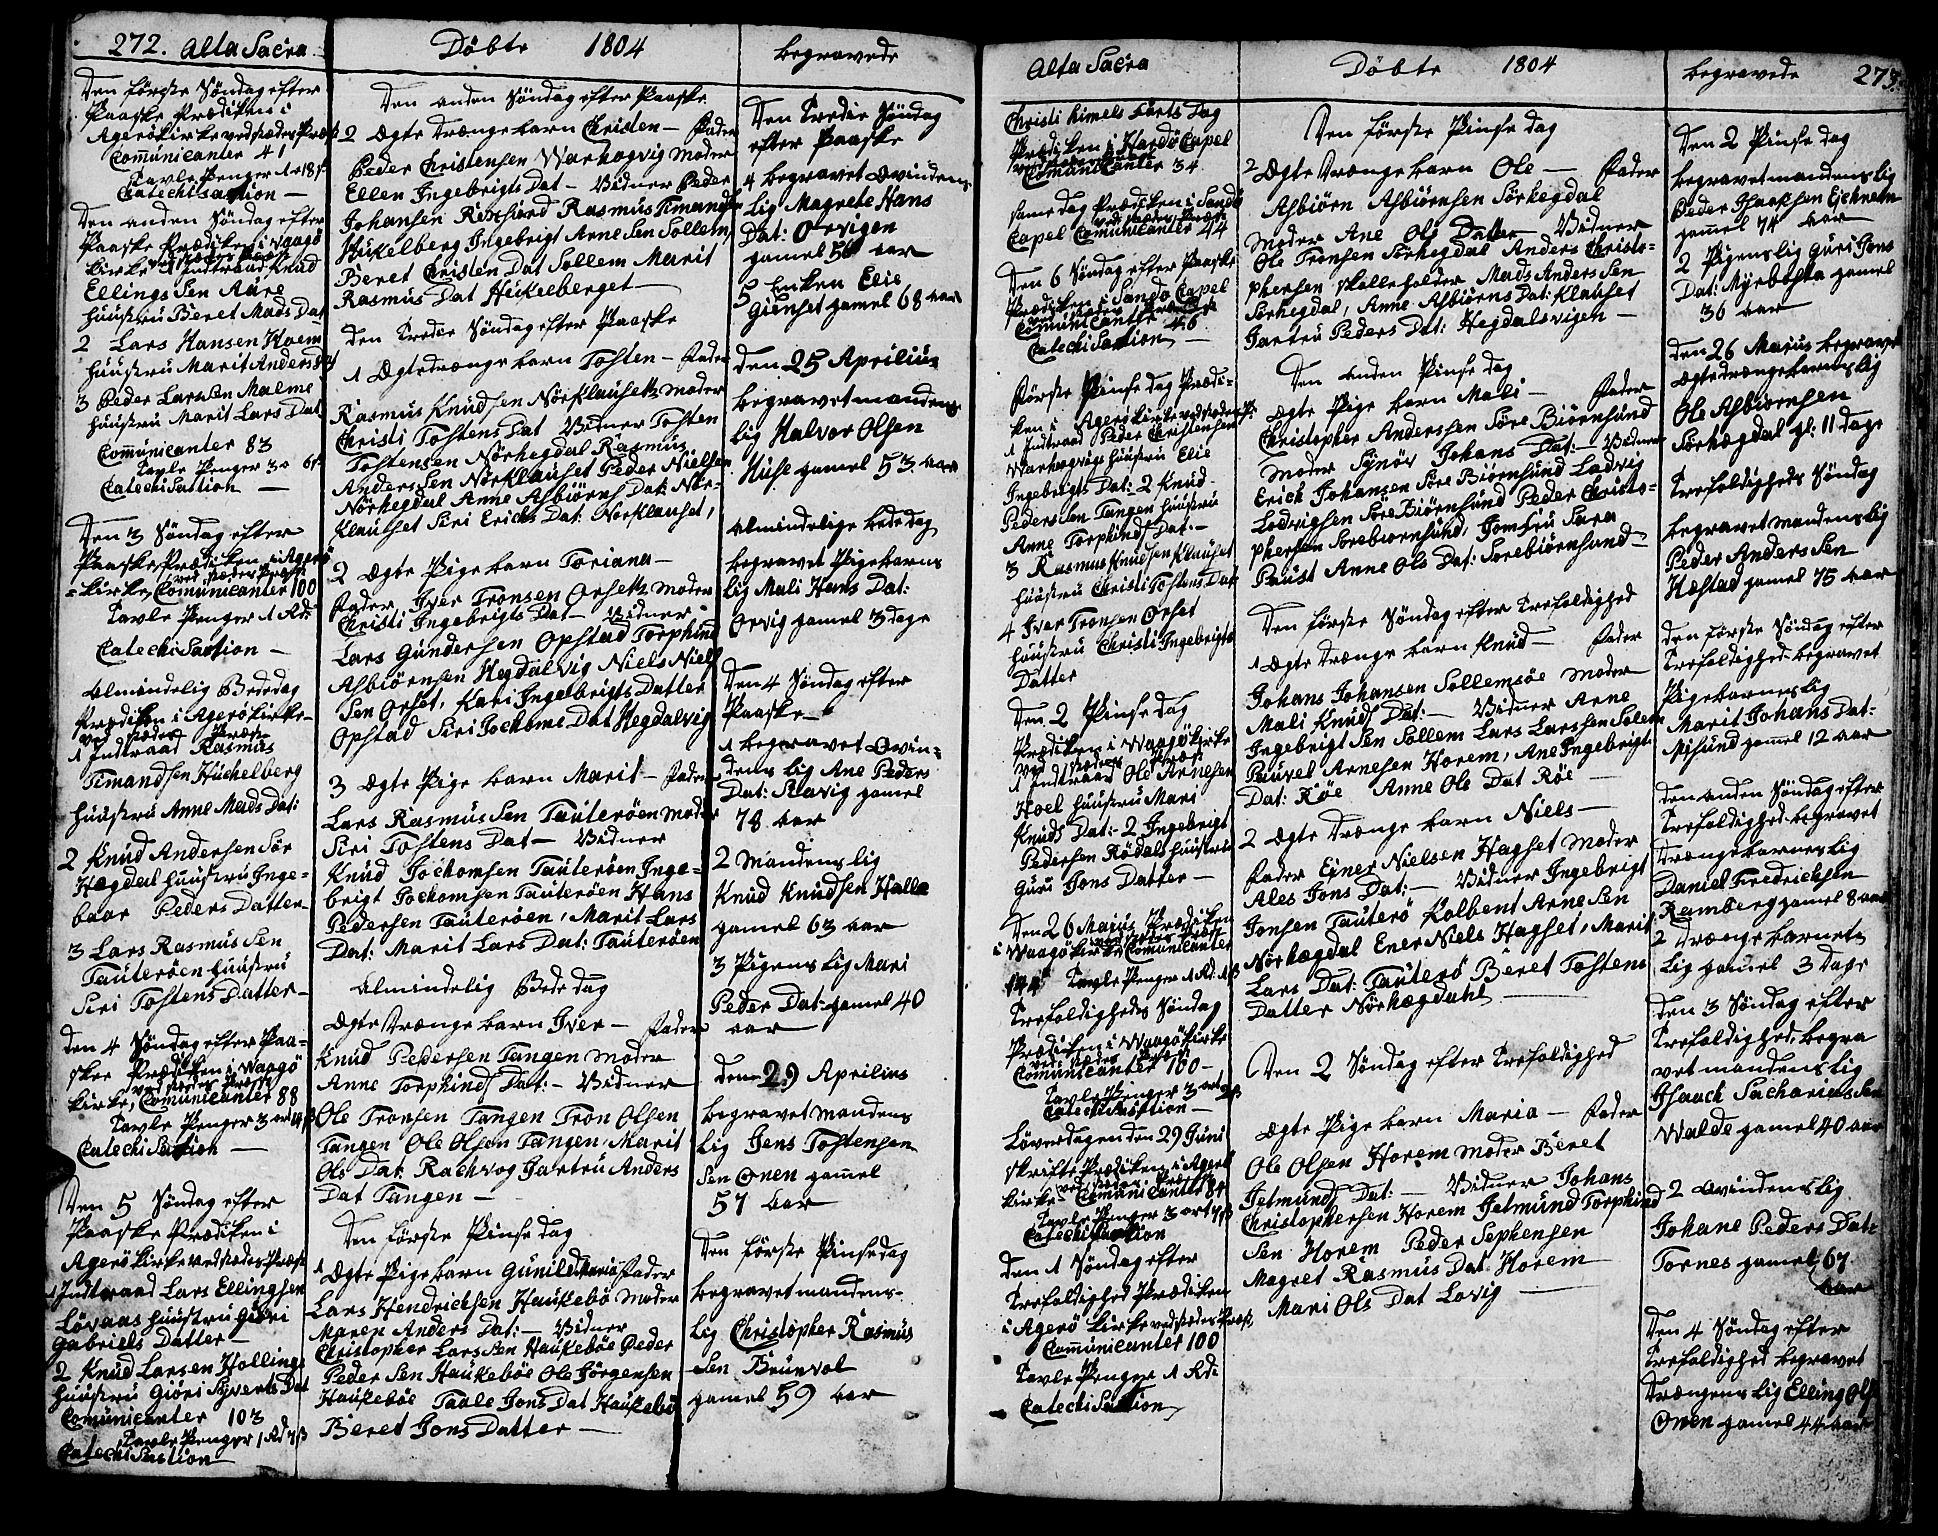 272. Alta Sacra
Den første Søndag efter
Paaske Prædiken i
Agerö Kirke ved stædes Præst
Comunicanter 41
Tavle Penger
Catechisation —
Den anden Søndag efter
Paaske Prædiken i Vaagö
Kirke ved stædes Præst
1 Indtraad Knud
Ellings Sen Aare
Huustru Beret Mads Dat
2 Lars Hansen Hoem
Huustru Marit Anders
3 Peder Lars Sen Malme
Huustru Marit Lars Dat
Comunicanter 83
Tavle Penger
Catechisation —
Den 3 Søndag efter
Paaske Prædiken i Agerö
Kirke ved stædes Præst
Comunicanter 100
Tavle Penger 1 Rd
Catechisation —
Almindelig Bededag
Prædiken i Agerö Kirke
ved stædes Præst
1 Indtraad Rasmus
Timandsen Huchelberg
Huustru Anne Mads Dat:
2 Knud Andersen Sör
Hægdal Huustru Inge-
baar Peders Datter
3 Lars Rasmus Sen
Tauteröen Huustru
Siri Tostens Datter
Den 4 Søndag efter Paa-
ske Prædiken i Waagö
ved stædes Præst
Kirke, Comunicanter 88
Tavle Penger 3 ort
Catechisation —
Den 5 Søndag efter
Paaske Prædiken i
Agerö Kirke ved stædes Præst
1 Indtraad Lars Ellingsen
Lövaas Huustru Giöri
Gabriels Datter —
2 Knud Larsen Hollings
Huustru Giöri Syverts Dat
Comunicanter 103
Tavle Penger 1 Rd
Catechisation
Döbte 1804
Den anden Søndag efter Paaske
2 Ægte Drænge barn Christen — Fader
Peder Christensen Warhogvig Moder
Ellen Ingebrigts Dat — Vidner Peder
Johansen Rasmus Timandsen
Hukelberg Ingebrigt Arne Sen Sollem
Beret Christen Dat Sollem Marit
Rasmus Dat Hukelberget —
Den Tredie Søndag efter Paaske
1 Ægte Drænge barn Tosten — Fader
Rasmus Knudsen Nörklauset Moder
Christi Tostens Dat Vidner Tosten
Tostensen Nörhegdal Rasmus
Anders Sen Nörklauset Peder Nielsen
Nörhegdal Anne Asbiörns Dat: Nör-
klauset Siri Erichs Dat: Nörklauset,
2 Ægte Pige barn Toriana —
Fader, Iver Tronsen Orset Moder
Christi Ingebrigts Dat — Vidner
Lars Gundersen Opstad Torphind
Asbiörnsen Hegdalvig Niels Niels
Sen Orset, Kari Ingebrigts Datter
Opstad Siri Jockoms Dat Hegdalvig
3 Ægte Pige barn Marit — Fader
Lars Rasmus Sen Tauteröen Moder
Siri Tostens Dat — Vidner
Knud Jockomsen Tauteröen Inge-
brigt Jockomsen Tauteröen Hans
Pedersen Tauteröen, Marit Lars
Dat: Marit Lars Dat: Tauteröen
Almindelig Bededag
Ægte Drænge barn Iver — Fader
Knud Pedersen Tangen Moder
Anne Torphinds Dat: — Vidner
Ole Tronsen Tangen Tron Olsen
Tangen Ole Olsen Tangen, Marit
Ols Dat: Rachvog Jartru Anders
Dat Tangen —
Den første Pinse dag
1 Ægte Pige barn Gunild Maria Fader
Lars Hendrichsen Haukebö Moder
Maren Anders Dat: — Vidner
Christopher Lars Sen Haukeböe Peder
Peder Sen Haukeböe Ole Jörgensen
Haukeböe Taale Jons Dat Haukebö
Beret Jons Datter —
Begravede
Den Tredie Søndag
efter Paaske
4 begravet Qvindens
Lig Magrete Hans
Dat: Orvigen
gamel 56 Aar
5 Enken Elie
Gienset gamel 68 Aar
Den 25 Aprilius
begravet Mandens
Lig Halvor Olsen
Huse gamel 53 Aar
Almindelige Bededag
begravet Pigebarns
Lig Mali Hans Dat:
Orvig gamel 3 dage
Den 4 Søndag efter
Paaske —
1 begravet Qvin-
dens Lig Ane Peders
Dat: gamel
78 Aar
2 Mandens Lig
Knud Knudsen Halle
gamel 63 Aar
3 Pigens Lig Mari
Peder Dat: gamel 40
Aar
Den 29 Aprilius
begravet Mandens
Lig Jens Tostensen
Sen Onen gamel
57 Aar
Den første Pinsedag
begravet Mandens
Lig Christopher Rasmus
Sen Brunvol
gamel 59 Aar
Alta Sacra
Christi Himels farts Dag
Prædiken i Harö Capel
Comunicanter 34
Same dag Prædiken i Sandö
ved stædes Præst
Capel Comunicanter 44
Den 6 Søndag efter Paaske
Prædiken i Sandö Capel
Comunicanter 46
Catechisation —
Første Pinse dag Prædi-
ken i Agerö Kirke ved stædes Pr
1 Indtraad Peder Christensen
Warhogvigs Huustru Elie
Ingebrigts Dat: 2 Knud
Peders Sen Tangen Huustru
Anne Torphinds Dat: —
3 Rasmus Knudsen Klauset
Huustru Christi Tostens Dat
4 Iver Tronsen Orset
Huustru Christi Ingebrigts
Datter
Den 2 Pinse dag
Prædiken i Waagö Kirke
ved stædes Præst
1 Indtraad Ole Arnesen
Hoel Huustru Mari
Knuds Dat: — 2 Ingebrigt
Pedersen Rödals Huustru
Guru Jons Datter —
Den 26 Majus Prædiken
i Waagö Kirke Comunicanter
144 Tavle Penger 1 Rd:
Trefoldigheds Søndag
Prædiken i Waagö Kirke
ved stædes Præst
Comunicanter 100 —
Tavle Penger 3 ort
Catechisation —
Löverdagen den 29 Juni
Skrifte Prædiken i Agerö
Kirke Comunicanter 84
Tavle Penger 3 ort
Catechisation
Den 1 Søndag efter
Trefoldighed Prædiken
i Agerö Kirke ved stædes Præst
Comunicanter 100
Tavle Penger 1 Rd:
Catechisation
Döbte 1804
Den første Pinse dag
2 Ægte Drænge barn Ole — Fader
Asbiörn Asbiörnsen Sörhegdal
Moder Ane Ols Datter Vidner
Ole Tronsen Sörhegdal Anders Christo-
phersen Skolleholder Mads Anders Sen
Sörhegdal, Anne Asbiörns Dat: Klauset
Jartru Peders Dat: Hegdalsvigen —
Den anden Pinse dag
Ægte Pige barn Mali — Fader
Christopher Andersen Söre Biörnsund
Moder Synöv Johans Dat: — Vidner
Erich Johansen Söre Biörnsund Ladvig
Lodvigsen Söre Biörnsund Peder Christo-
phersen Sörebiornsund, Jomfru Sara
Paust Anne Ols Dat: Sörebiörnsund —
Den første Søndag efter Trefoldighed
1 Ægte Drænge barn Knud — Fader
Johans Johansen Sollemsöe Moder
Mali Knuds Dat: — Vidner Arne
Ingebrigt Sen Sollem Lars Larssen Solem
Pauvel Arnesen Horem, Ane Ingebrigt
Dat: Röe Anne Ole Dat Röe —
2 Ægte Drænge barn Niels —
Fader Ejner Nielsen Hagset Moder
Ales Jons Dat: — Vidner Ingebrigt
Jonsen Tauterö Kolbent Arne Sen
Nörhægdal Ener Niels Hagset, Marit
Lars Dat: Tauterö Beret Tostens
Datter Nörhægdahl —
Den 2 Søndag efter Trefoldighed
Ægte Pige barn Maria — Fader
Ole Olsen Horem Moder Beret
Jetmunds Dat: — Vidner Johans
Christophersen Horem Jetmund Torphind
Sen Horem Peder Sephensen
Magret Rasmus Dat Horem
Mari Ols Dat Lovig —
Begravede 273.
Den 2 Pinse dag
begravet Mandens Lig
Peder Isaacsen Ejchnem
gamel 74 Aar
2 Pigens Lig Guri Jons
Dat: Myrbostad gamel
36 Aar
Den 26 Majus begravet
Ægte Drænge barns Lig
Ole Asbiornsen
Sörhægdal gl: 11 Dage
Trefoldigheds Søndag
begravet Mandens Lig
Peder Anders Sen
Hostad gamel 75 Aar
Den første Søndag efter
Trefoldighed begravet
Pigebarnes Lig
Marit Johans Dat:
Misund gamel 12 Aar
Den anden Søndag efter
Trefoldighed begravet
Drængebarnes Lig
Daniel Fredrichsen
Ramberg gamel 8 Aar
2 Drænge barnets
Lig gamel 3 Dage
Den 3 Søndag efter
Trefoldighed, begra
vet Mandens Lig
Isaach Sacharias Sen
Walde gamel 40 Aar
2 Qvindens Lig
Johane Peders Dat:
Tornes gamel 67
Aar
Den 4 Søndag efter
Trefoldighed begravet
Drængens Lig Elling Ols
Onen gamel 44 Aar